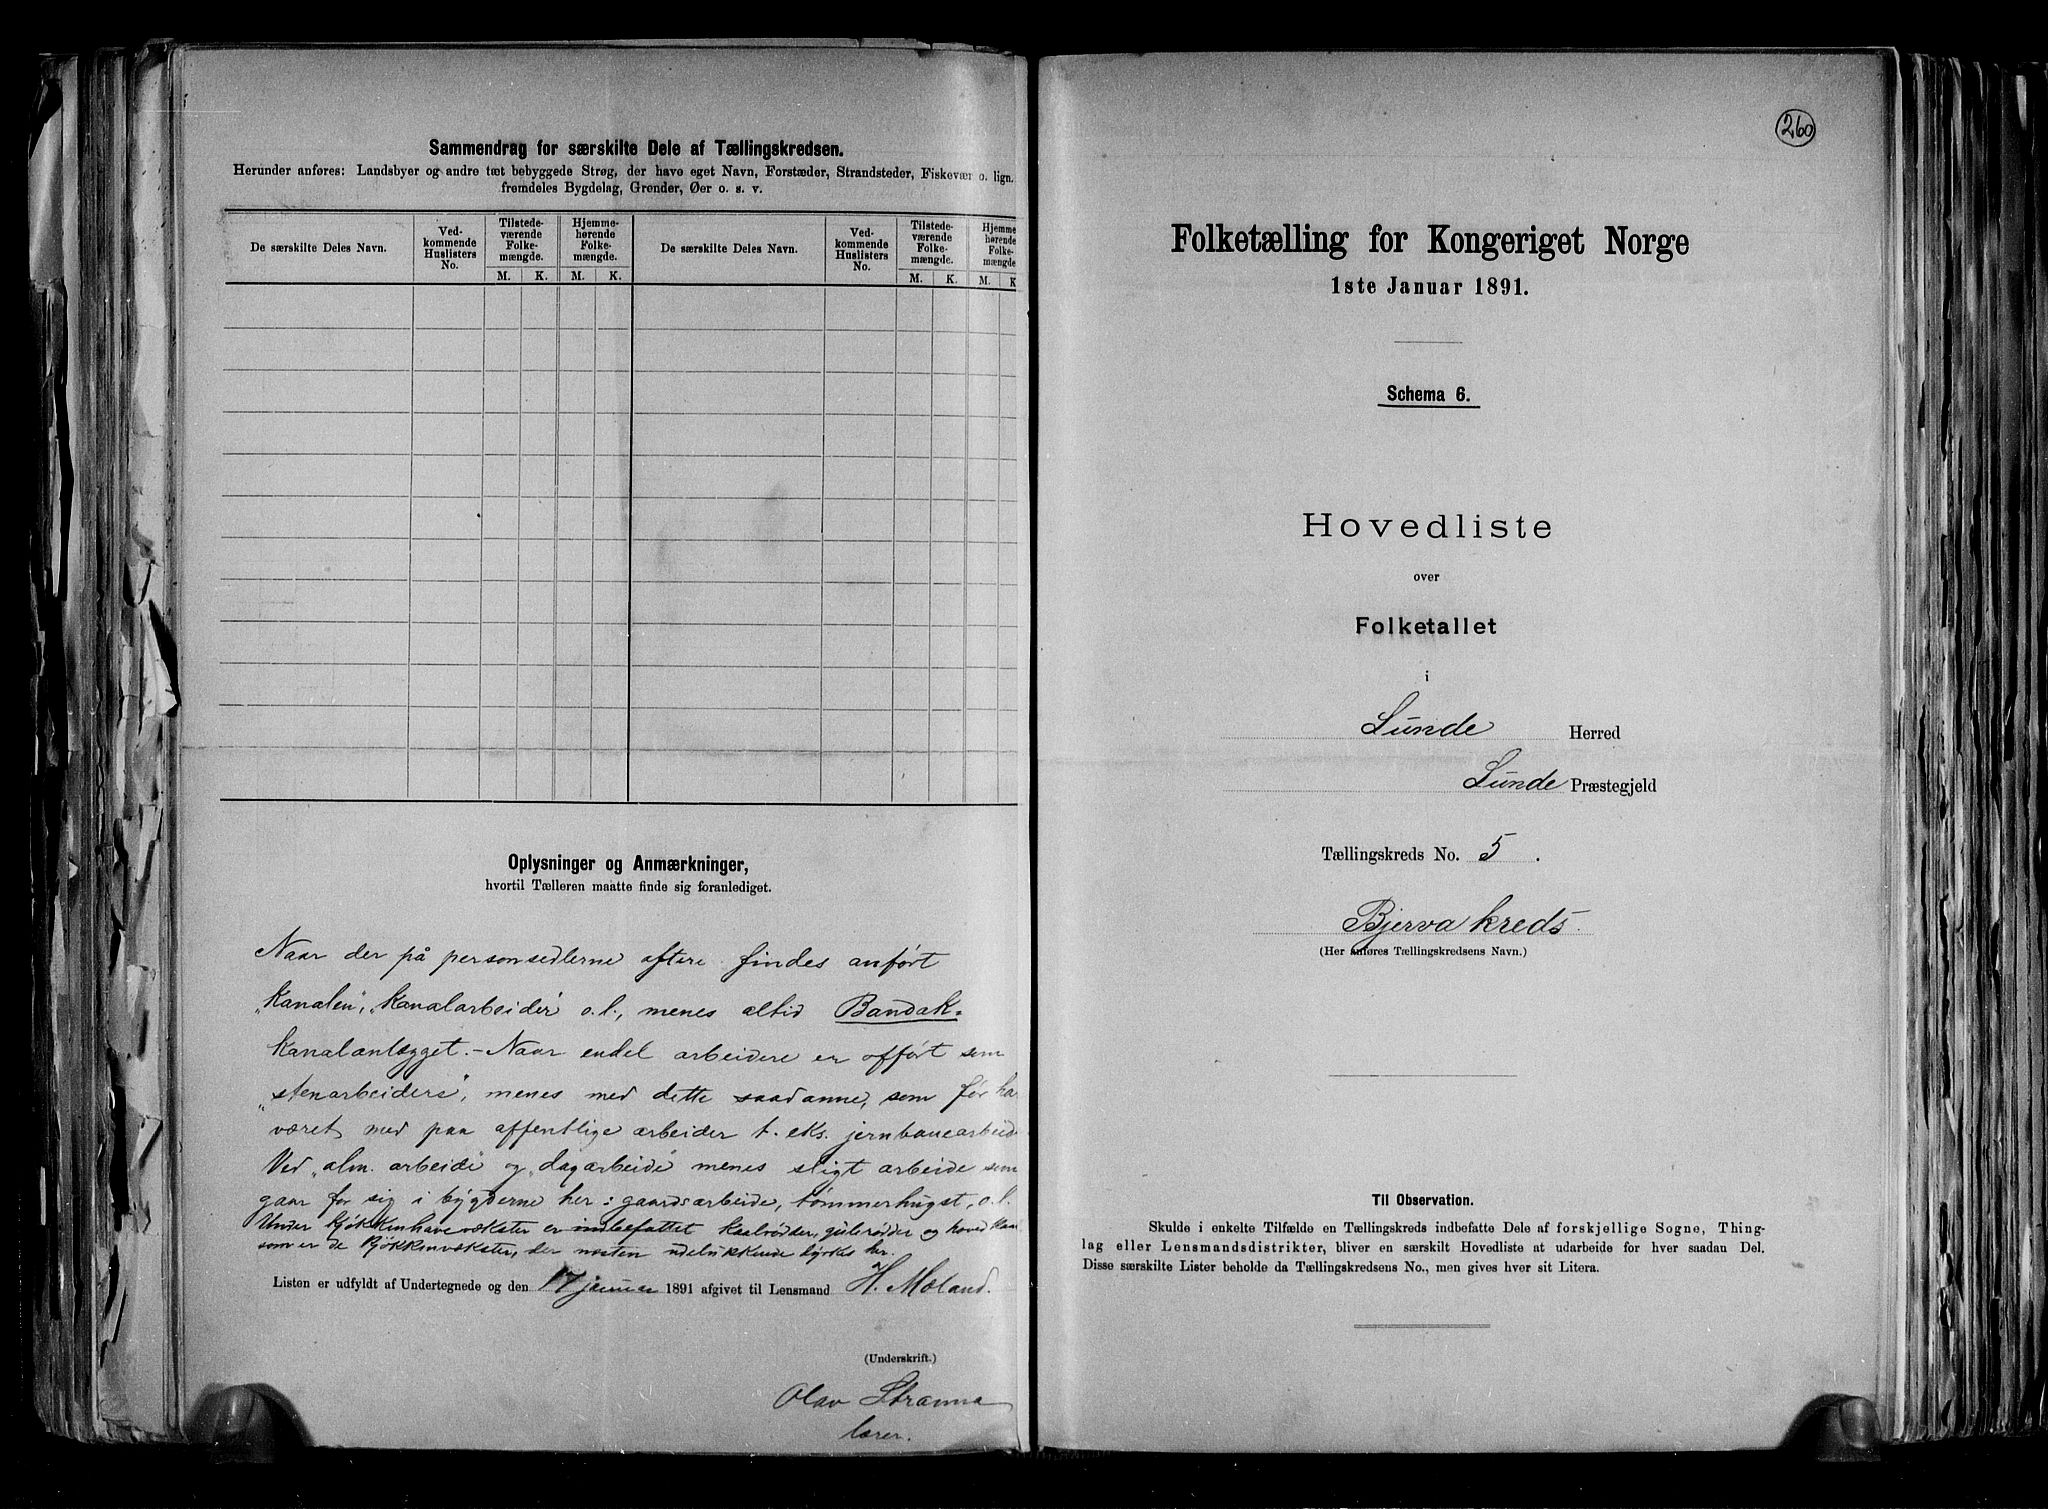 Sammendrag for særskilte Dele af Tællingskredsen.
Herunder anføres: Landsbyer og andre tæt bebyggede Strøg, der have eget Navn, Forstæder, Strandsteder, Fiskevær o. lign.
fremdeles Bygdelag, Grender, Øer o. s. v.
De særskilte Deles Navn.
Ved-
kommende
Huslisters
No.
Tilstede-
værende
Folke-
mængde.
M. K.
Hjemme-
hørende
Folke-
mængde.
M. K.
De særskilte Deles Navn.
Ved-
kommende
Huslisters
No.
Tilstede-
værende
Folke-
mængde.
M. K.
Hjemme-
hørende
Folke-
mængde
M. K
Oplysninger og Anmærkninger,
hvortil Tælleren maatte finde sig foranlediget.
Naar der på personsedlerne oftere findes anført
„Kanalen", „Kanalarbeider" o.l., menes altid Bandak-
kanalanlægget. – Naar endel arbeidere er opført som
„stenarbeidere", menes med dette saadanne, som før ha
været med paa offentlige arbeider t. eks. jernbanearbeid
Ved „alm. arbeide" og „dagarbeide" menes sligt arbeide som
gaar for sig i bygderne her: gaardsarbeide, tømmerhugst, o.l.
Under Kjøkkenhavevækster er indbefattet kaalrødder, gulerødder og hovedkaal
som er de Kjøkkenvækster, der næsten udelukkende dyrkes her.
Listen er udfyldt af Undertegnede og den 17 januar 1891 afgivet til Lensmand H. Moland.
(Underskrift.)
Olav Stranna
lærer.
260
Folketælling for Kongeriget Norge
1ste Januar 1891.
Schema 6.
Hovedliste
over
Folketallet
i
Lunde Herred
Lunde Præstegjeld
Tællingskreds No. 5.
Bjerva kreds.
(Her anføres Tællingskredsens Navn.)
Til Observation.
Skulde i enkelte Tilfælde en Tællingskreds indbefatte Dele af forskjellige Sogne, Thing-
lag eller Lensmandsdistrikter, bliver en særskilt Hovedliste at udarbeide for hver saadan Del.
Disse særskilte Lister beholde da Tællingskredsens No., men gives hver sit Litera.